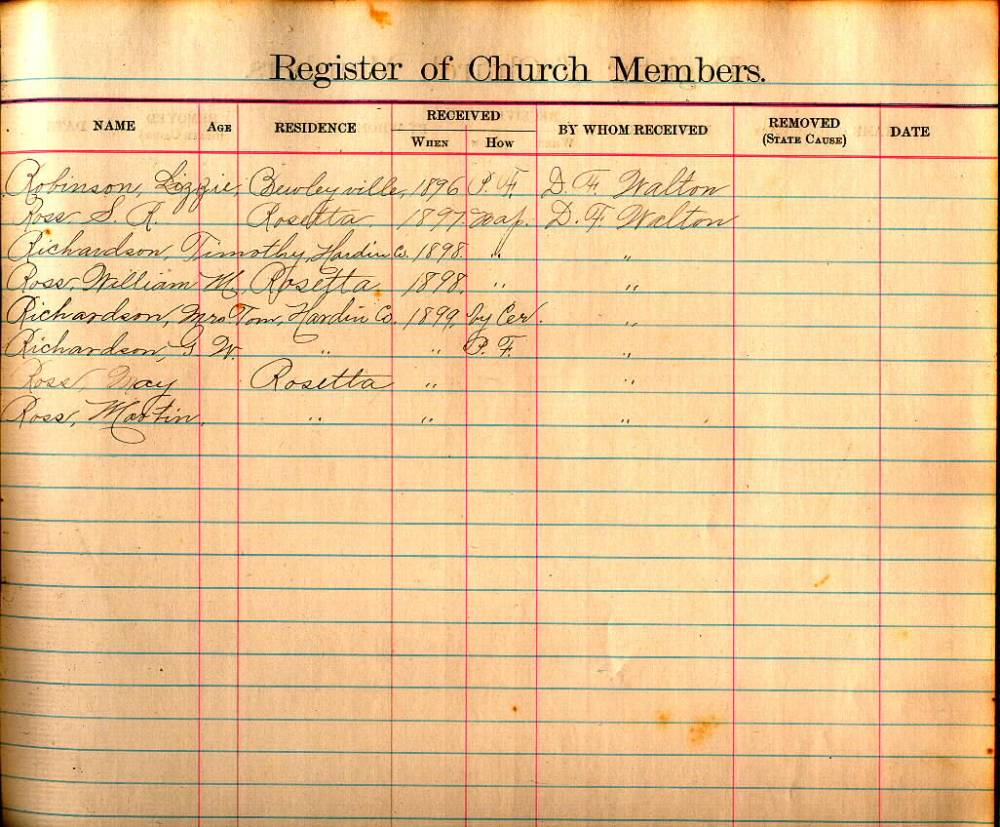 Register of Church Members.
RECEIVED
NAME AGE RESIDENCE BY WHOM RECEIVED REMOVED (STATE CAUSE) DATE
WHEN HOW
Robinson, Lizzie, Bewleyville, 1896 P. F. D. F. Walton
Ross S. R. Rosetta 1897. Bap. D. F. Walton
Richardson, Timothy, Hardin Co. 1898. " "
Ross, William M, Rosetta, 1898, " "
Richardson, Mrs Tom, Hardin Co. 1899, by Cer. "
Richardson, G W. " " P. F. "
Ross, May Rosetta " "
Ross, Martin. " " "